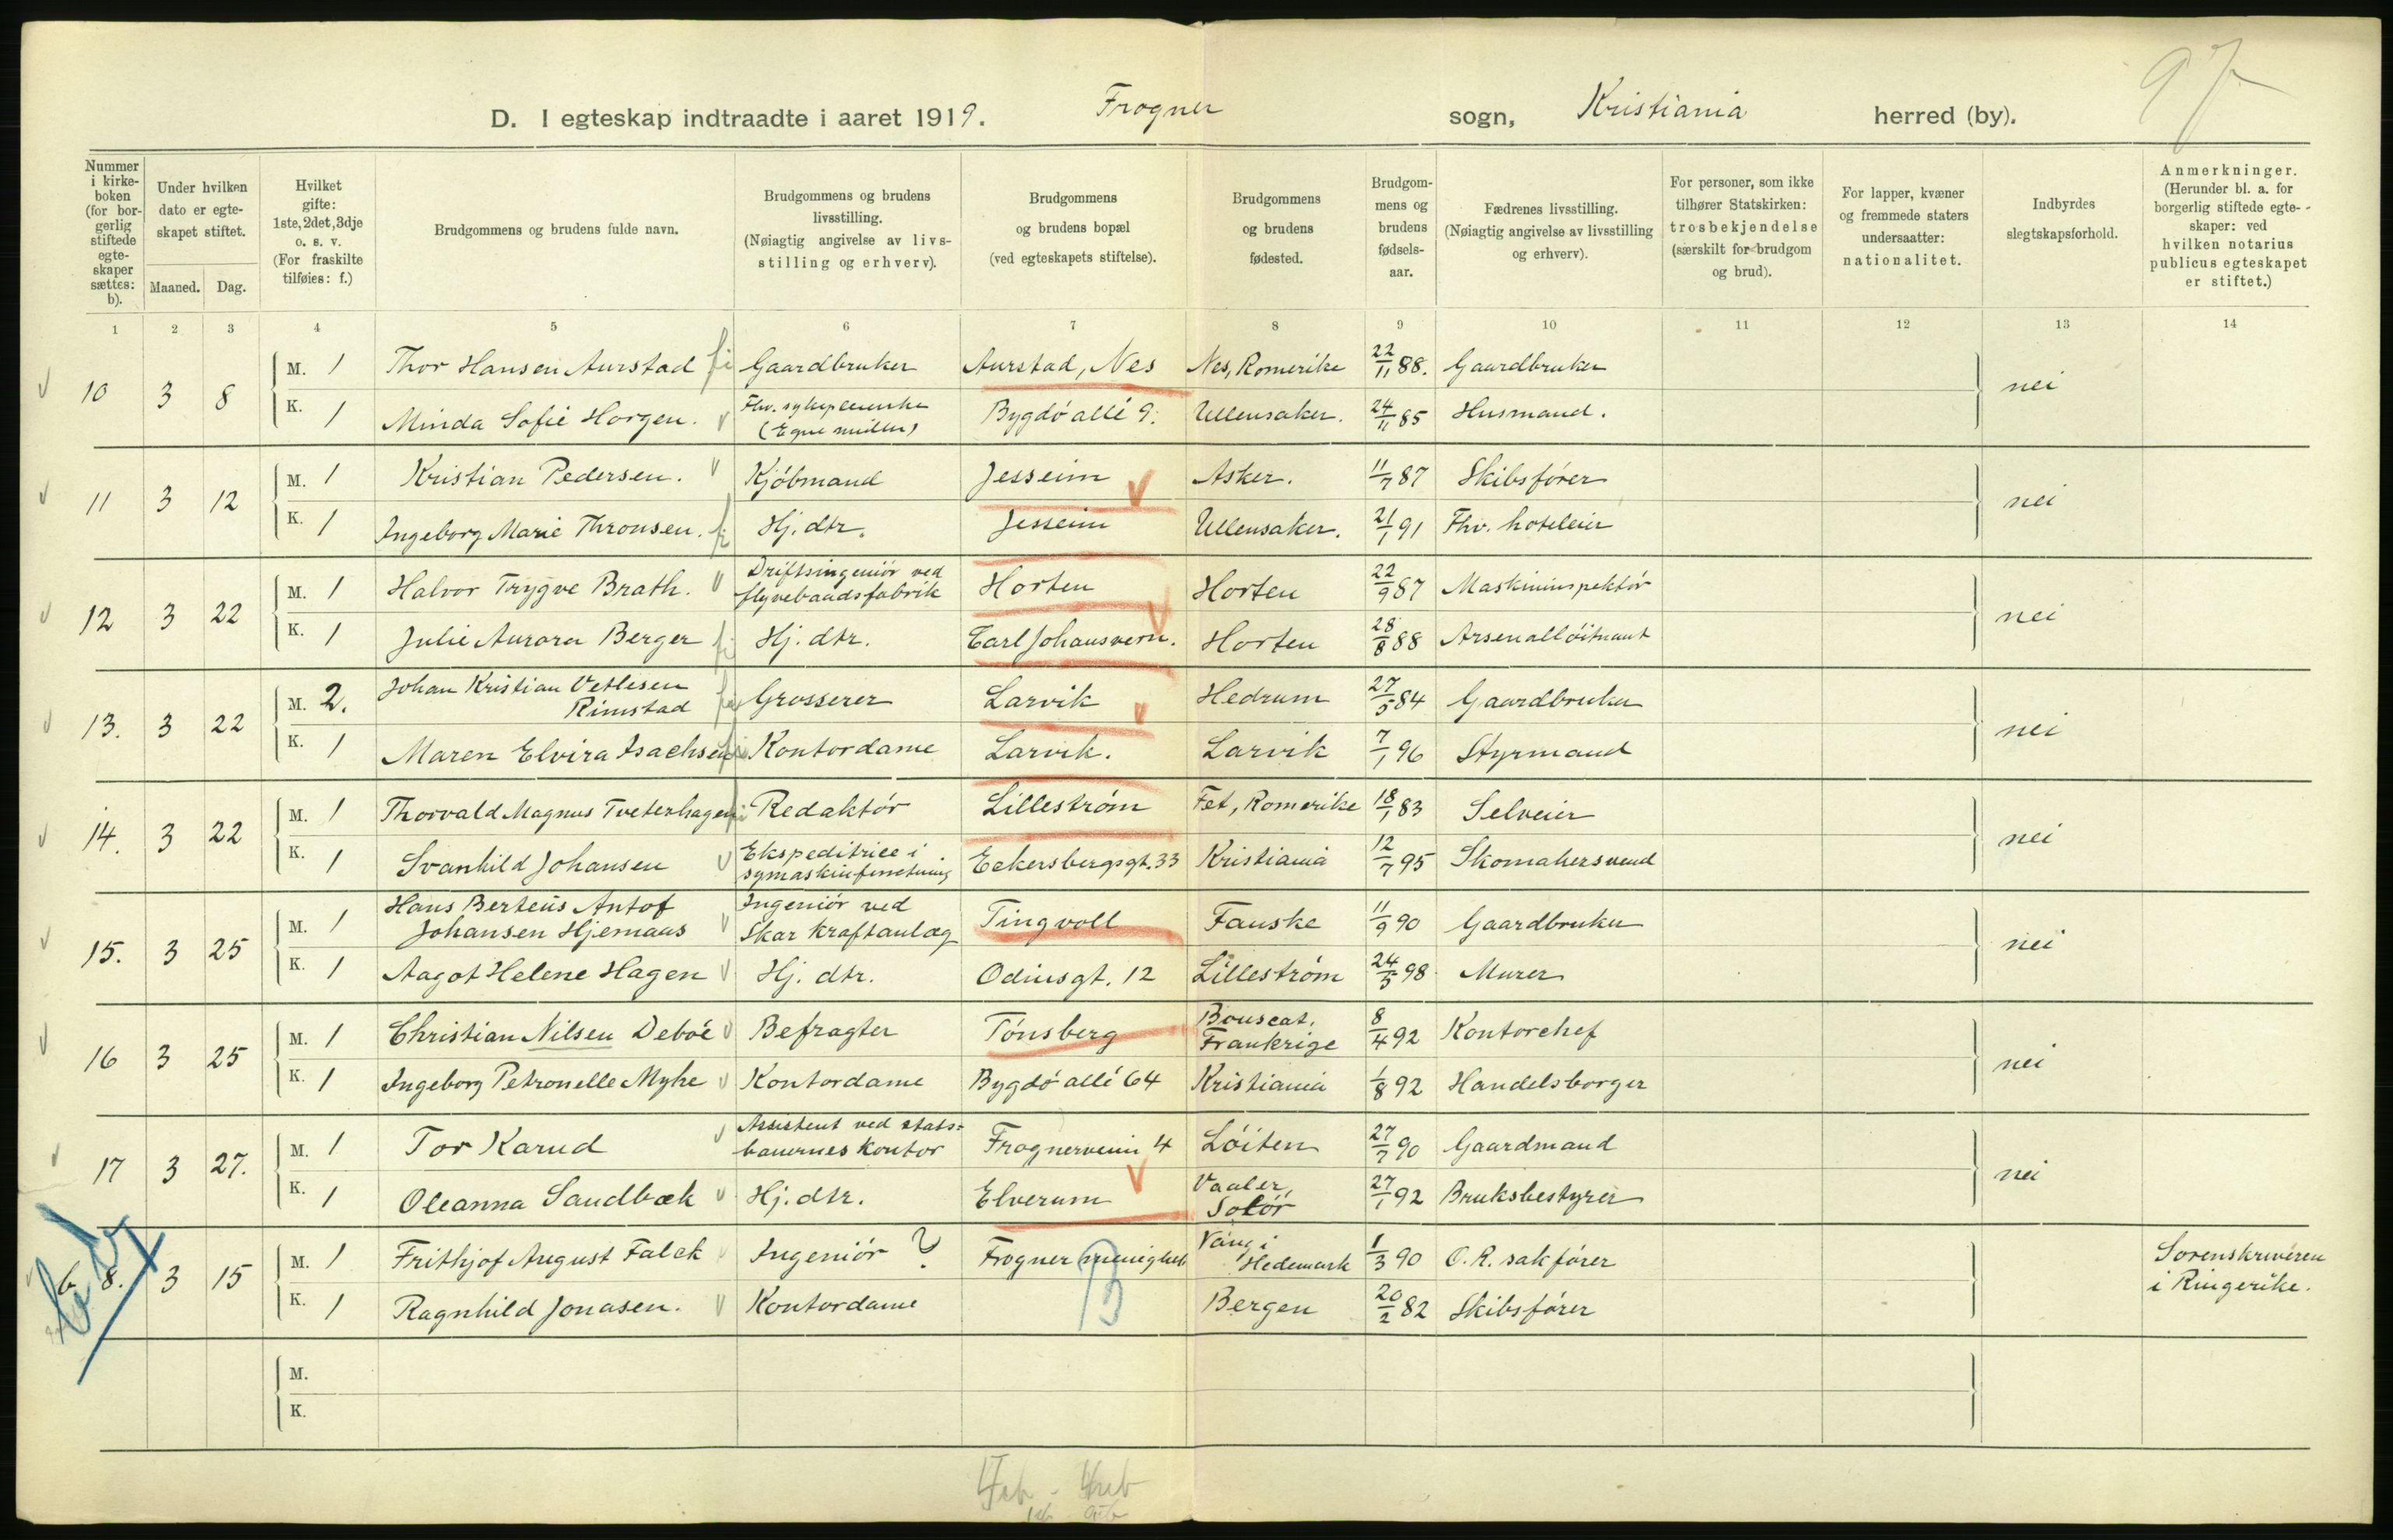 97
D. I egteskap indtraadte i aaret 1919. Frogner sogn, Kristiania herred (by).
Nummer i kirke-boken (for bor-gerlig stiftede egte-skaper sættes: b).
Under hvilken dato er egte-skapet stiftet.
Maaned. Dag.
Hvilket gifte: 1ste, 2det, 3dje o. s. v. (For fraskilte tilføies: f.)
Brudgommens og brudens fulde navn.
Brudgommens og brudens livsstilling. (Nøiagtig angivelse av livs-stilling og erhverv).
Brudgommens og brudens bopæl (ved egteskapets stiftelse).
Brudgommens og brudens fødested.
Brudgom-mens og brudens fødsels-aar.
Fædrenes livsstilling. (Nøiagtig angivelse av livsstilling og erhverv).
For personer, som ikke tilhører Statskirken: trosbekjendelse (særskilt for brudgom og brud).
For lapper, kvæner og fremmede staters undersaatter: nationalitet.
Indbyrdes slegtskapsforhold.
Anmerkninger. (Herunder bl. a. for borgerlig stiftede egte-skaper: ved hvilken notarius publicus egteskapet er stiftet.)
1 2 3 4 5 6 7 8 9 10 11 12 13 14
10 3 8 M. 1 Thor Hansen Aurstad Gaardbruker Aurstad, Nes Nes, Romerike 22/11 88. Gaardbruker nei
K. 1 Minda Sofie Horgen. Fhv. sykepleierske (Egne midler) Bygdö allé 9. Ullensaker. 24/11 85 Husmand.
11 3 12 M. 1 Kristian Pedersen. Kjöbmand Jesseim Asker. 11/7 87 Skibsförer nei
K. 1 Ingeborg Marie Thronsen. Hj. dtr. Jesseim Ullensaker. 21/1 91 Fhv. hoteleier
12 3 22 M. 1 Halvor Trygve Brath. Driftsingeniör ved flyvebaadsfabrik Horten Horten 22/9 87 Maskininspektör nei
K. 1 Julie Aurora Berger Hj. dtr. Carl Johansvern. Horten 28/8 88 Arsenallöitnant
13. 3 22 M. 2. Johan Kristian Vetlesen Rimstad Grosserer Larvik Hedrum 27/5 84 Gaardbruker nei
K. 1 Maren Elvira Isachsen Kontordame Larvik. Larvik 7/1 96 Styrmand
14. 3 22 M. 1 Thorvald Magnus Tveterhagen Redaktör Lilleström Fet, Romerike 18/1 83 Selveier nei
K. 1 Svanhild Johansen Ekspeditrice i symaskinforretning Eckersbergsgt. 33 Kristiania 12/7 95 Skomakersvend
15. 3 25 M. 1 Hans Berteus Antof Johansen Hjemaas Ingeniör ved Skar kraftanlæg Tingvoll Fauske 11/9 90 Gaardbruker nei
K. 1 Aagot Helene Hagen Hj. dtr. Odinsgt. 12 Lilleström 24/5 98 Murer
16 3 25 M. 1 Christian Nilsen Deboë Befragter Tönsberg Bouscat, Frankrige 8/4 92 Kontorchef nei
K. 1 Ingeborg Petronelle Myhre Kontordame Bygdö allé 64 Kristiania 1/8 92 Handelsborger
17 3 27. M. 1 Tor Karud Assistent ved stats-banernes kontor Frognerveien 4 Löiten 27/7 90 Gaardmand nei
K. 1 Oleanna Sandbæk Hj. dtr. Elverum Vaaler, Solör 27/1 92 Bruksbestyrer
b 8. 3 15 M. 1 Frithjof August Falck Ingeniör ? Frogner menighet Vang i Hedemark 1/3 90 O. R. sakförer Sorenskriveren i Ringerike.
K. 1 Ragnhild Jonasen. Kontordame B Bergen 20/2 82 Skibsförer
M.
K.